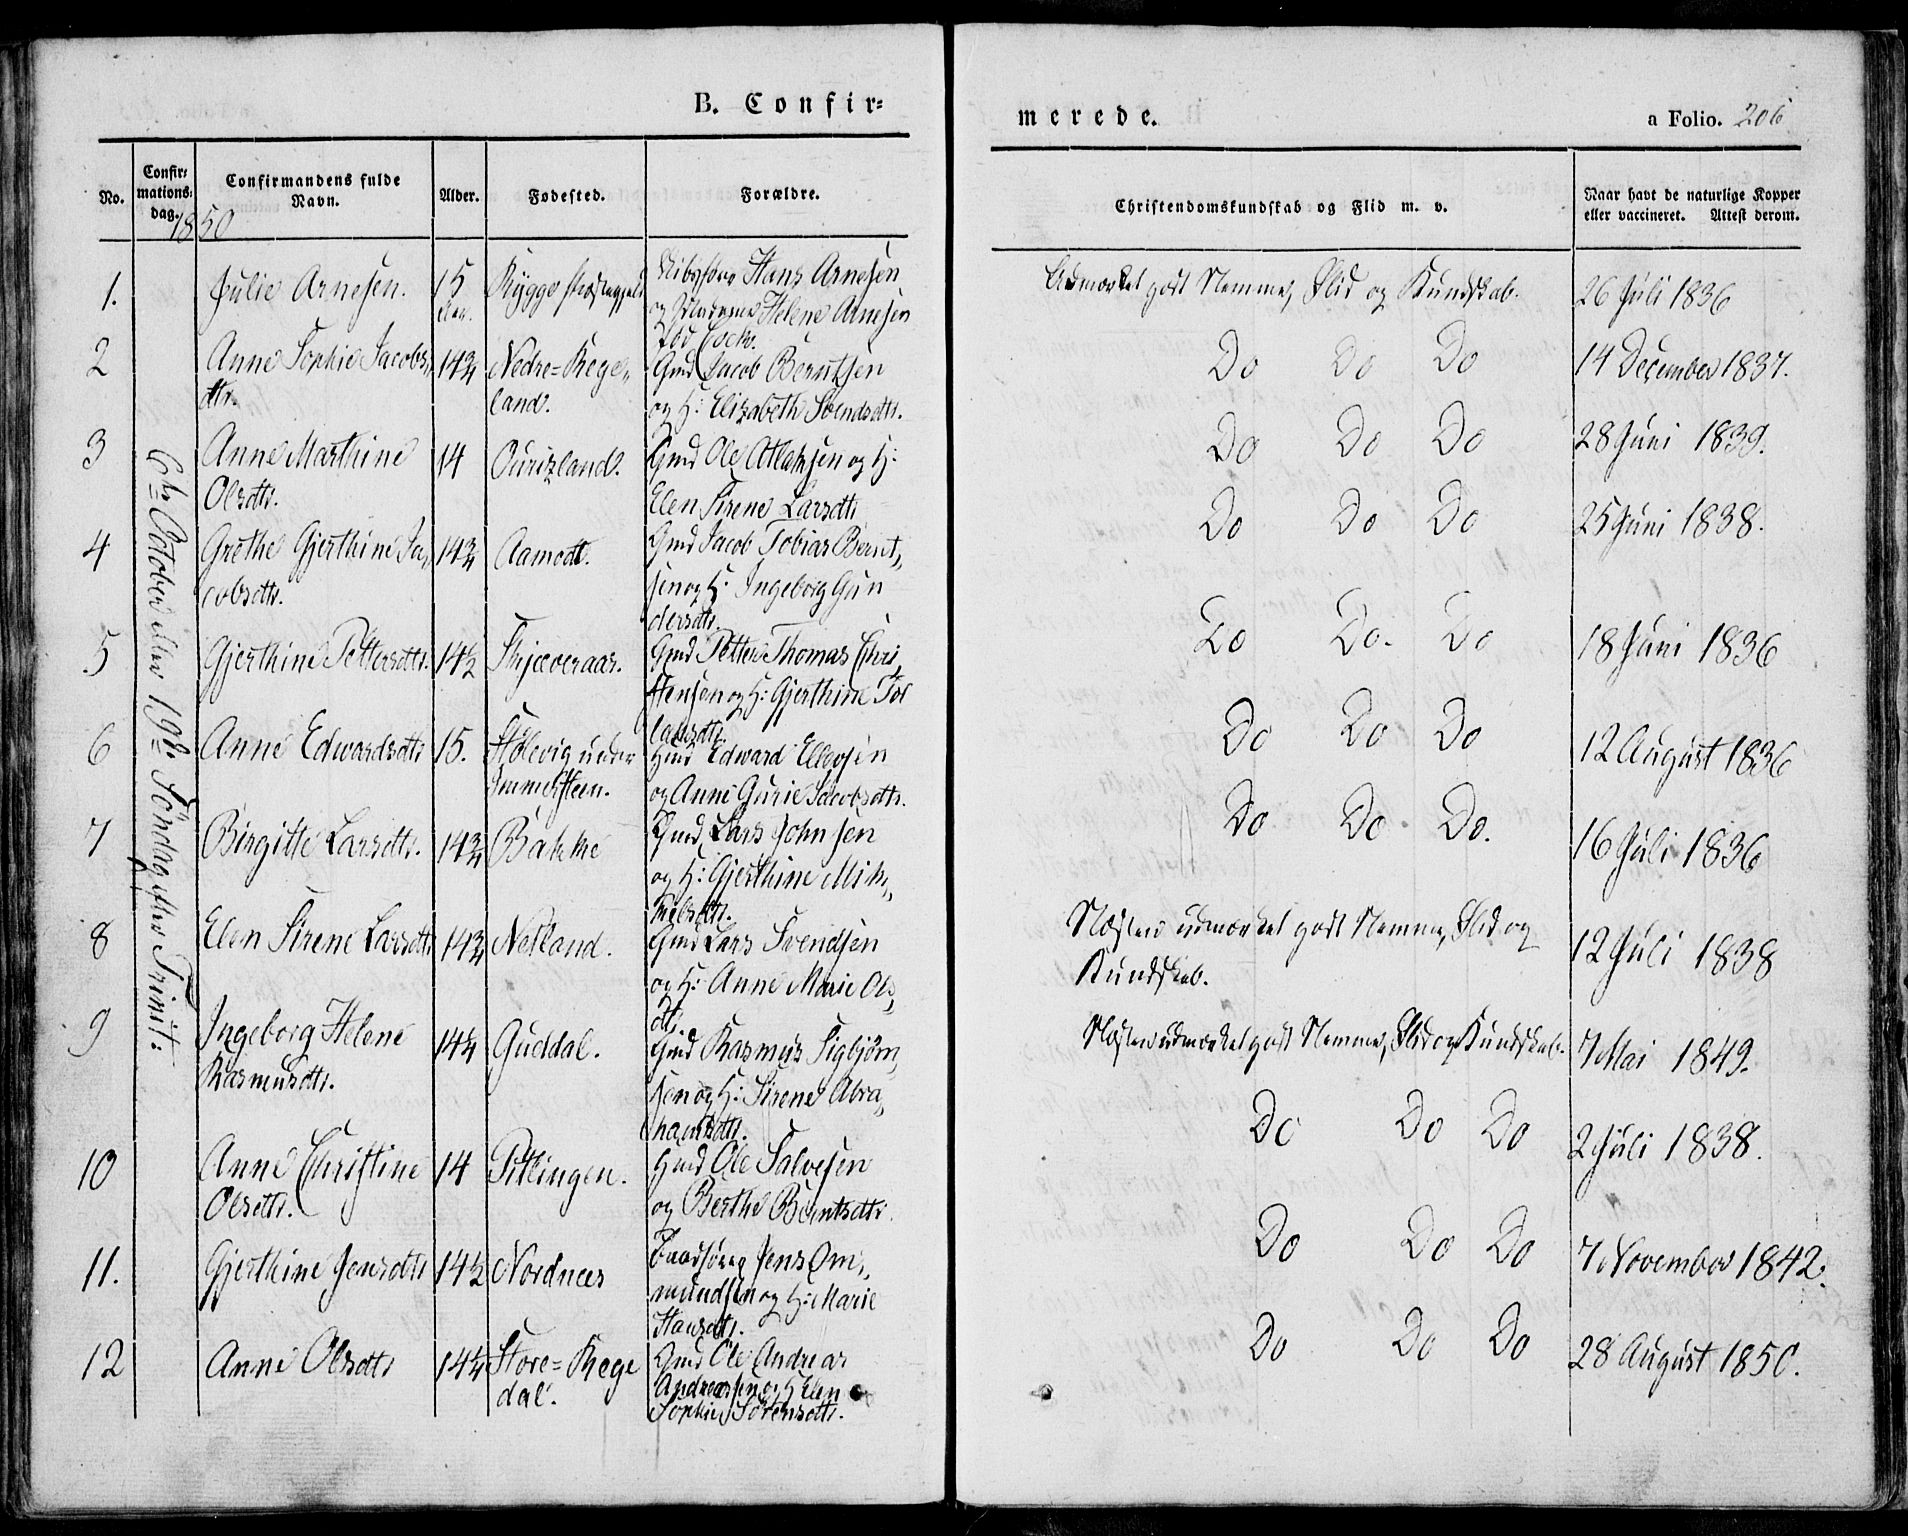 B. Confir=
merede.
a Folio. 206
No.
Confir=
mations=
dag.
Confirmandens fulde
Navn.
Alder.
Fødested.
Forældre.
Christendomskundskab og Flid m. v.
Naar havt de naturlige Kopper
eller vaccineret. Attest derom.
1850
6te October eller 19de Söndag efter Trinit:
1.
Julie Arnesen.
15
Rygge Præstegjeld
Hans Arnesen
og Helene Arnesen
fød Cock.
Udmærket godt Nemme, Flid og Kundskab.
26 Juli 1836
2
Anne Sophie Jacobs„
dtr.
14¾
Nedre=Rege„
land.
Gmd Jacob Berntsen
og H: Elizabeth Svendsdtr.
Do Do Do
14 December 1837.
3
Anne Marthine
Olsdtr.
14
Ourizland.
Gmd Ole Atlaksen og H:
Elen Sirene Larsdtr
Do Do Do
28 Juni 1839.
4
Grethe Gjerthine Ja„
cobsdtr.
14¾
Aamodt.
Gmd Jacob Tobias Bernt„
sen og H: Ingeborg Gun
dersdtr.
Do Do Do
25 Juni 1838.
5
Gjerthine Pettersdtr.
14½
Skjæveraas.
Gmd Petter Thomas Chri„
stensen og H: Gjerthine Tol
laksdtr.
Do Do. Do
18 Juni 1836
6
Anne Edwardsdtr
15.
Stölevig under
Immersteen.
Hmd Edward Ellevsen
og Anne Gurie Jacobsdtr.
Do Do Do
12 August 1836
7
Birgitte Larsdtr.
14¾
Bakke
Gmd Lars Johnsen
og H: Gjerthine Mik„
kelsdtr.
Do Do. Do.
16 Juli 1836
8
Elen Sirene Larsdtr
14¾
Netland.
Gmd Lars Svendsen
og H: Anne Marie Ols„
dtr.
Næsten udmærket godt Nemme, Flid og
Kundskab.
12 Juli 1838
9
Ingeborg Helene
Rasmusdtr.
14¼
Guddal.
Gmd Rasmus Sigbjörn„
sen og H: Sirene Abra„
hamsdtr.
Næsten udmærket godt Nemme, Flid og Kundskab.
7 Mai 1849.
10
Anne Christine
Olsdtr.
14
Pitlingen.
Hmd Ole Salvesen
og Berthe Berntsdtr.
Do Do Do
2 Juli 1838.
11.
Gjerthine Jensdtr
14½
Nordnes
Jens Om„
mundsen og H: Marie
Hansdtr.
Do Do Do
7 November 1842.
12
Anne Olsdtr
14¼
Store=Rege
dal.
Gmd Ole Andreas
Andreassen og H Elen
Sophie Sörensdtr.
Do Do Do
28 August 1850.